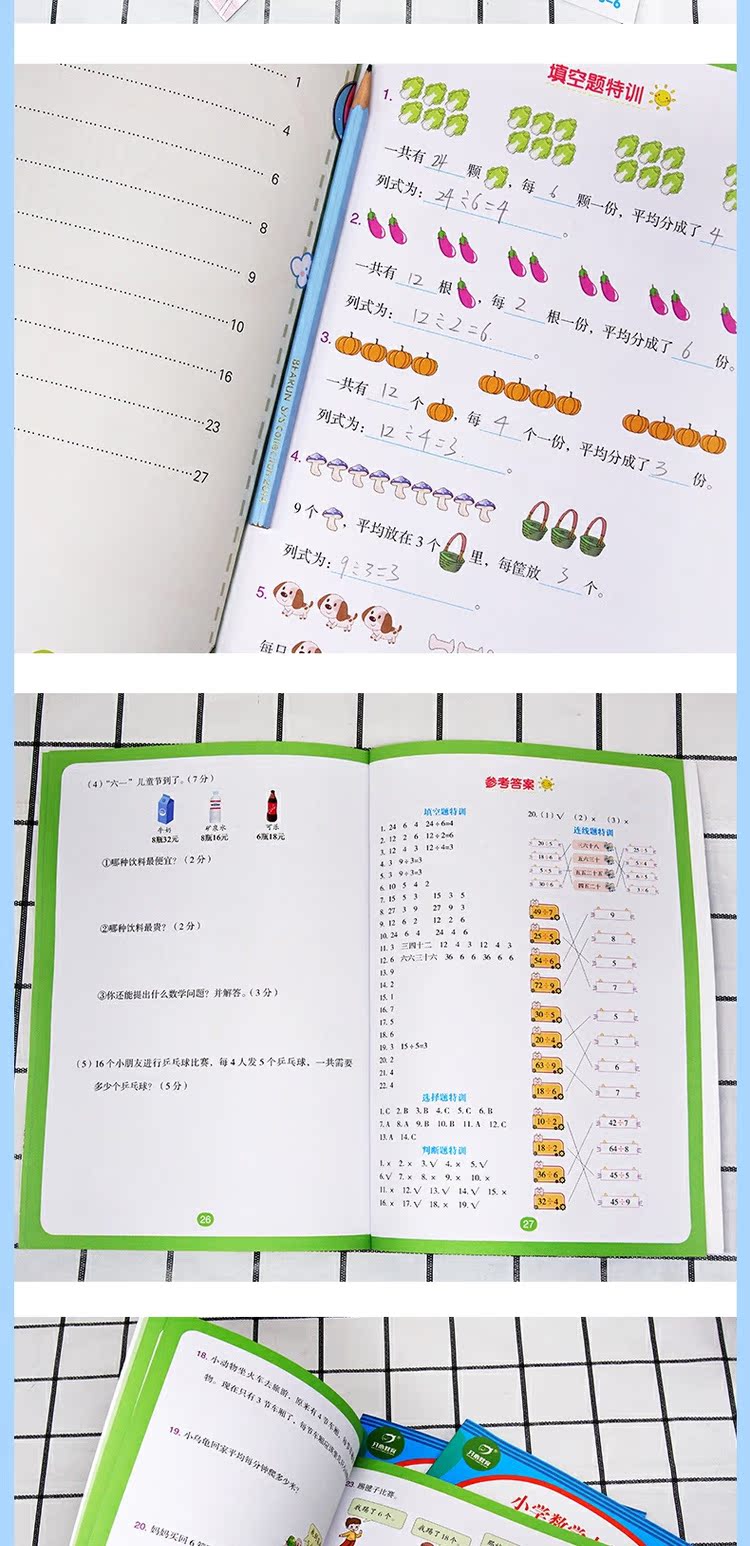 1
4
6
8
9
10
16
23
27
BEAKUN
填空题特训
1.
一共有 24 颗 ，每 6 颗一份，平均分成了 4
列式为： 24÷6=4 。
2.
一共有 12 根 ，每 2 根一份，平均分成了 6 份。
列式为： 12÷2=6 。
3.
一共有 12 个 ，每 4 个一份，平均分成了 3 份。
列式为： 12÷4=3 。
4.
9个 ，平均放在3个 里，每筐放 3 个。
列式为： 9÷3=3 。
5.
每只
（4）“六一”儿童节到了。（7分）
牛奶 矿泉水 可乐
8瓶32元 8瓶16元 6瓶18元
①哪种饮料最便宜？（2分）
②哪种饮料最贵？（2分）
③你还能提出什么数学问题？并解答。（3分）
（5）16个小朋友进行乒乓球比赛，每4人发5个乒乓球，一共需要
多少个乒乓球？（5分）
26
参考答案
填空题特训
1. 24 6 4 24÷6=4
2. 12 2 6 12÷2=6
3. 12 4 3 12÷4=3
4. 3 9÷3=3
5. 3 9÷3=3
6. 10 5 4 2
7. 15 5 3 15 3 5
8. 27 3 9 27 9 3
9. 12 6 2 12 2 6
10. 24 6 4 24 4 6
11. 3 三四十二 12 4 3 12 4 3
12. 6 六六三十六 36 6 6 36 6 6
13. 9
14. 2
15. 1
16. 7
17. 5
18. 6
19. 3 15÷5=3
20. 2
21. 4
22. 4
选择题特训
1.C 2.B 3.B 4.C 5.C 6.B
7.A 8.A 9.B 10.B 11.A 12.C
13.A 14.C
判断题特训
1.× 2.× 3.√ 4.× 5.√
6.√ 7.× 8.× 9.× 10.×
11.× 12.√ 13.√ 14.√ 15.×
16.× 17.√ 18.× 19.√
20.（1）√ （2）× （3）×
连线题特训
20÷5 三六十八 25÷5
18÷6 五六三十 5÷4
5×5 五五二十五 6÷5
30÷6 四五二十 3÷6
49÷7 9
25÷5 8
54÷6 5
72÷9 7
30÷5 5
20÷4 3
63÷9 6
18÷6 7
10÷2 42÷7
18÷2 64÷8
36÷6 45÷5
32÷4 45÷9
27
18. 小动物坐火车去旅游，原来有4节车厢，
物。现在只有3节车厢了，每节车厢应该
19. 小乌龟回家平均每分钟爬多少米？
20. 妈妈买回6
23. 踢毽子比赛。
我踢了6个。
我踢了18个。
小学数学